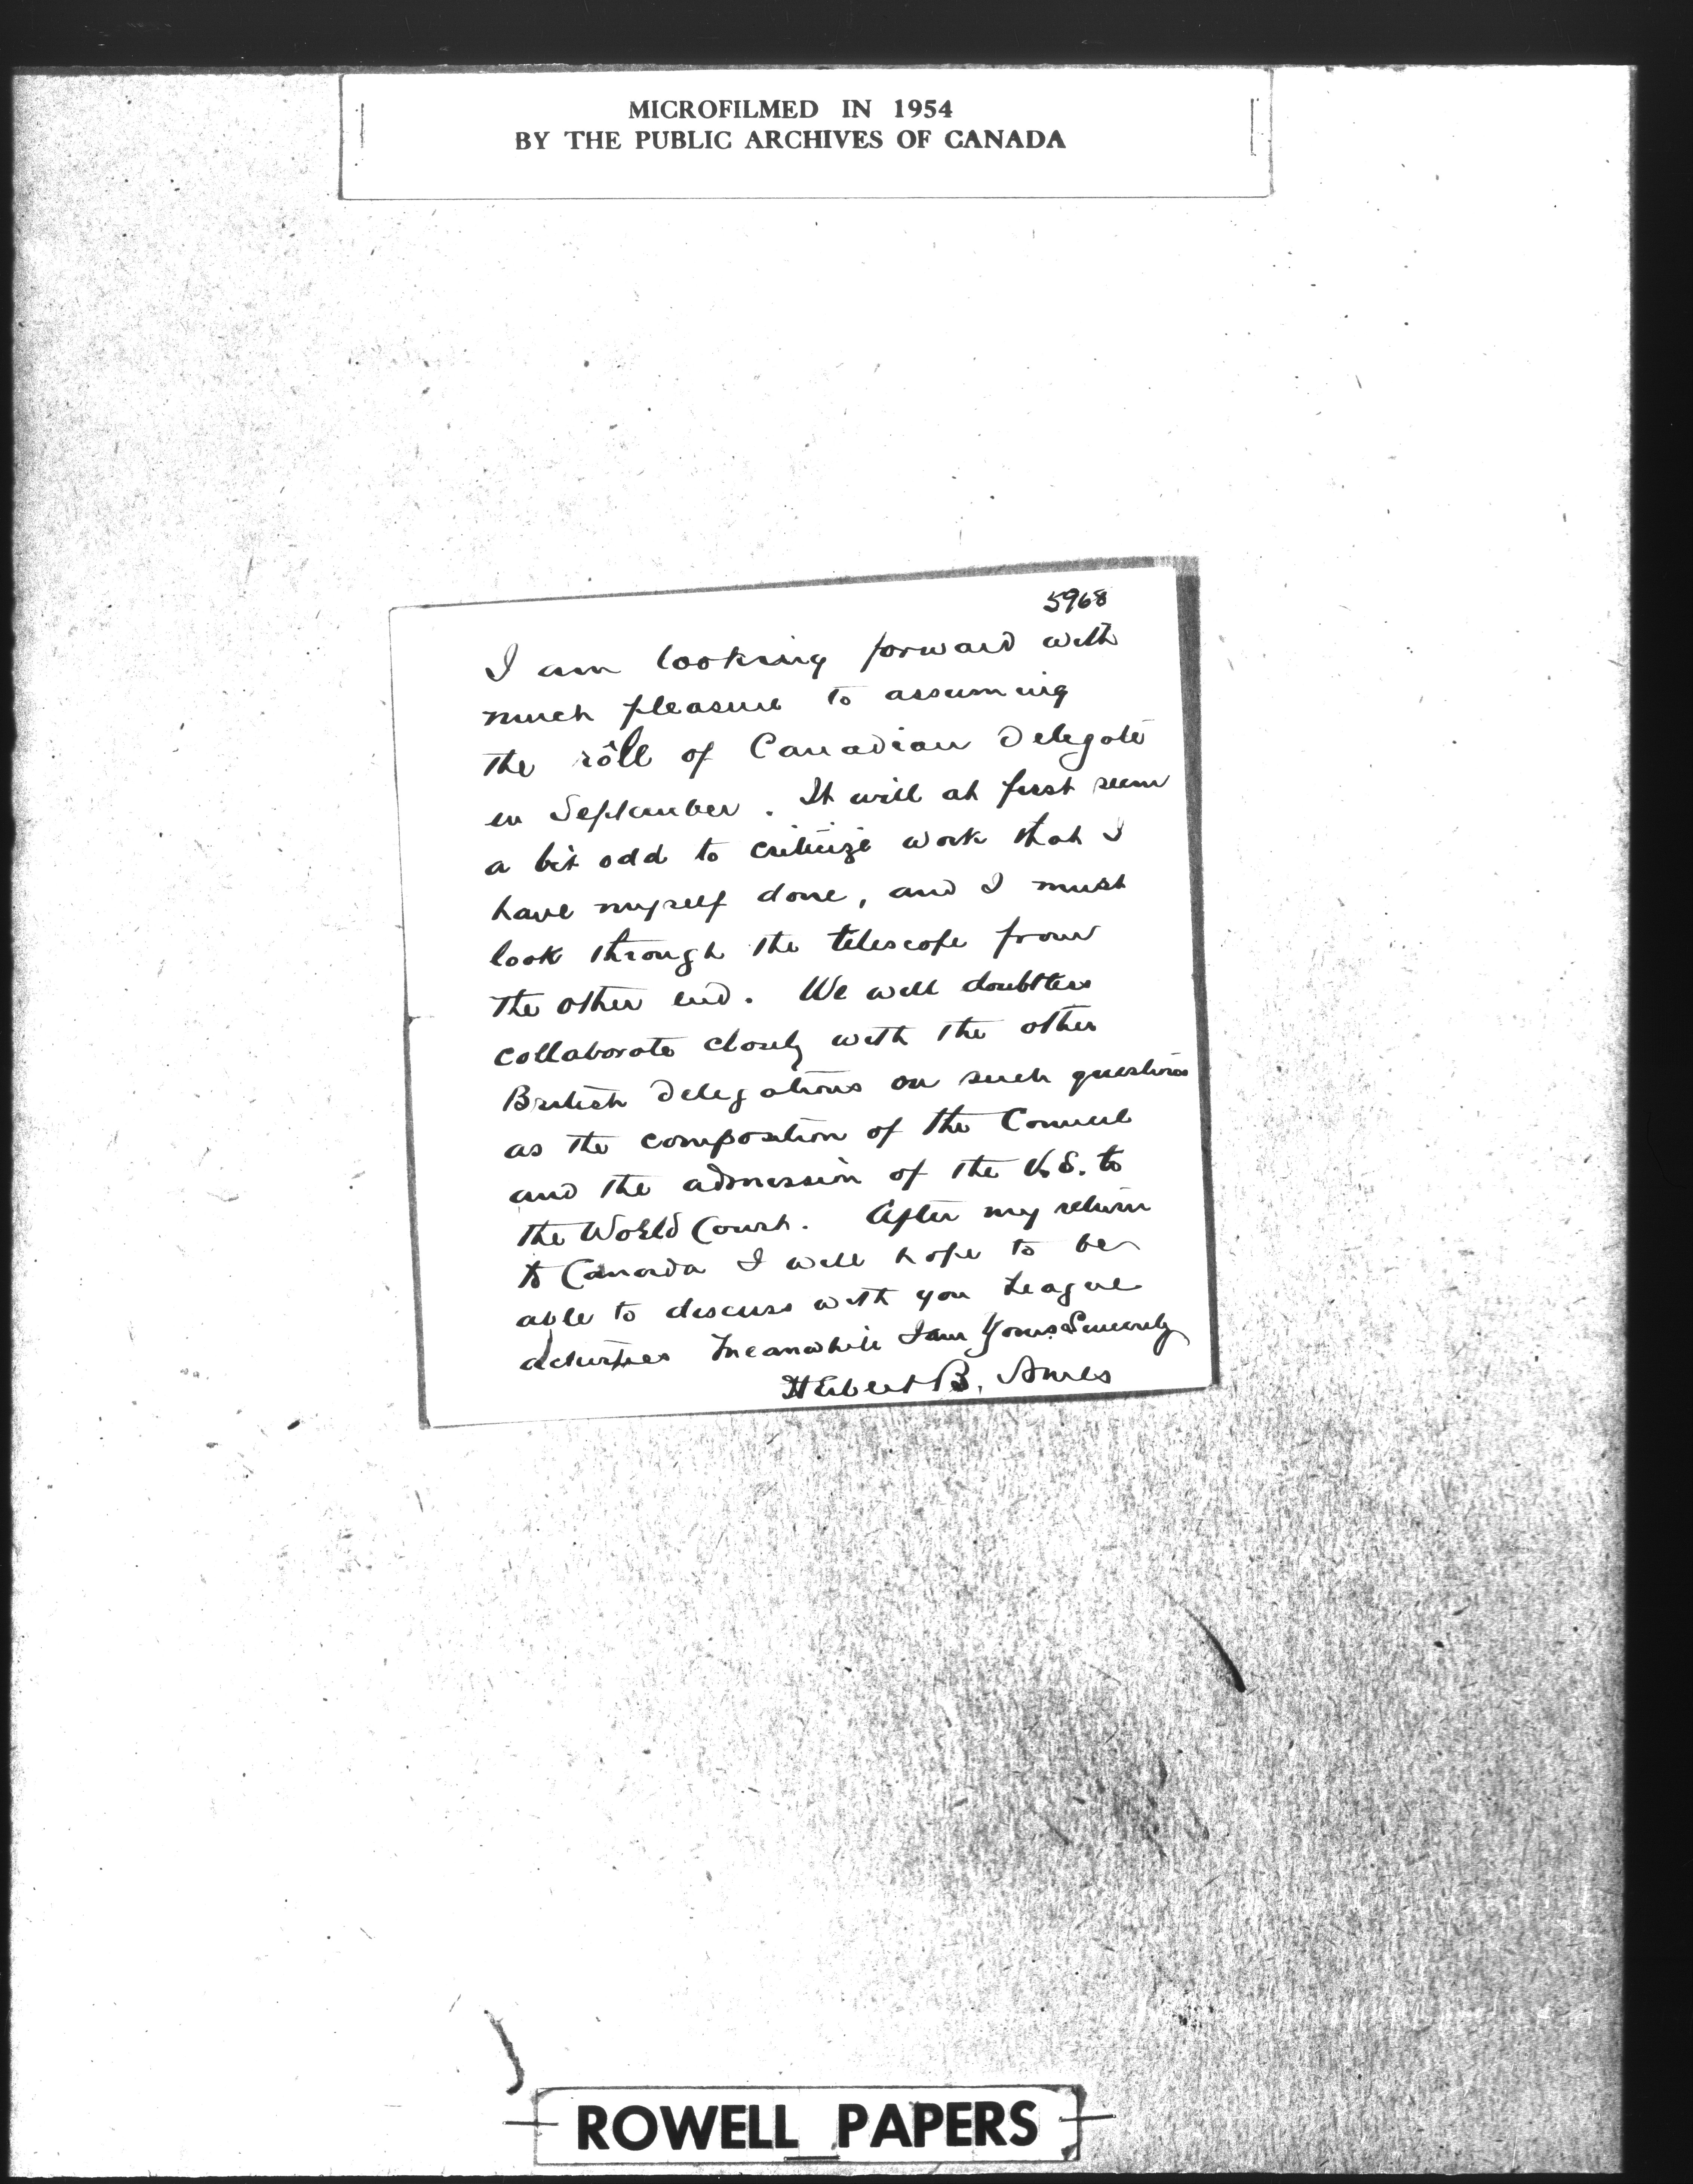 MICROFILMED IN 1954
BY THE PUBLIC ARCHIVES OF CANADA
5968
I am looking forward with
much pleasure to assuming
the rôll of Canadian Delegate
in September. It will at first seem
a bit odd to criticize work that I
have myself done, and I must
look through the telescope from
the other end. We will doubtless
collaborate closely with the other
British Delegations on such questions
as the composition of the Council
and the admission of the U.S. to
the World Court. After my return
to Canada I will hope to be
able to discuss with you League
activities Meanwhile I am Yours Sincerely
Herbert B. Ames
ROWELL PAPERS